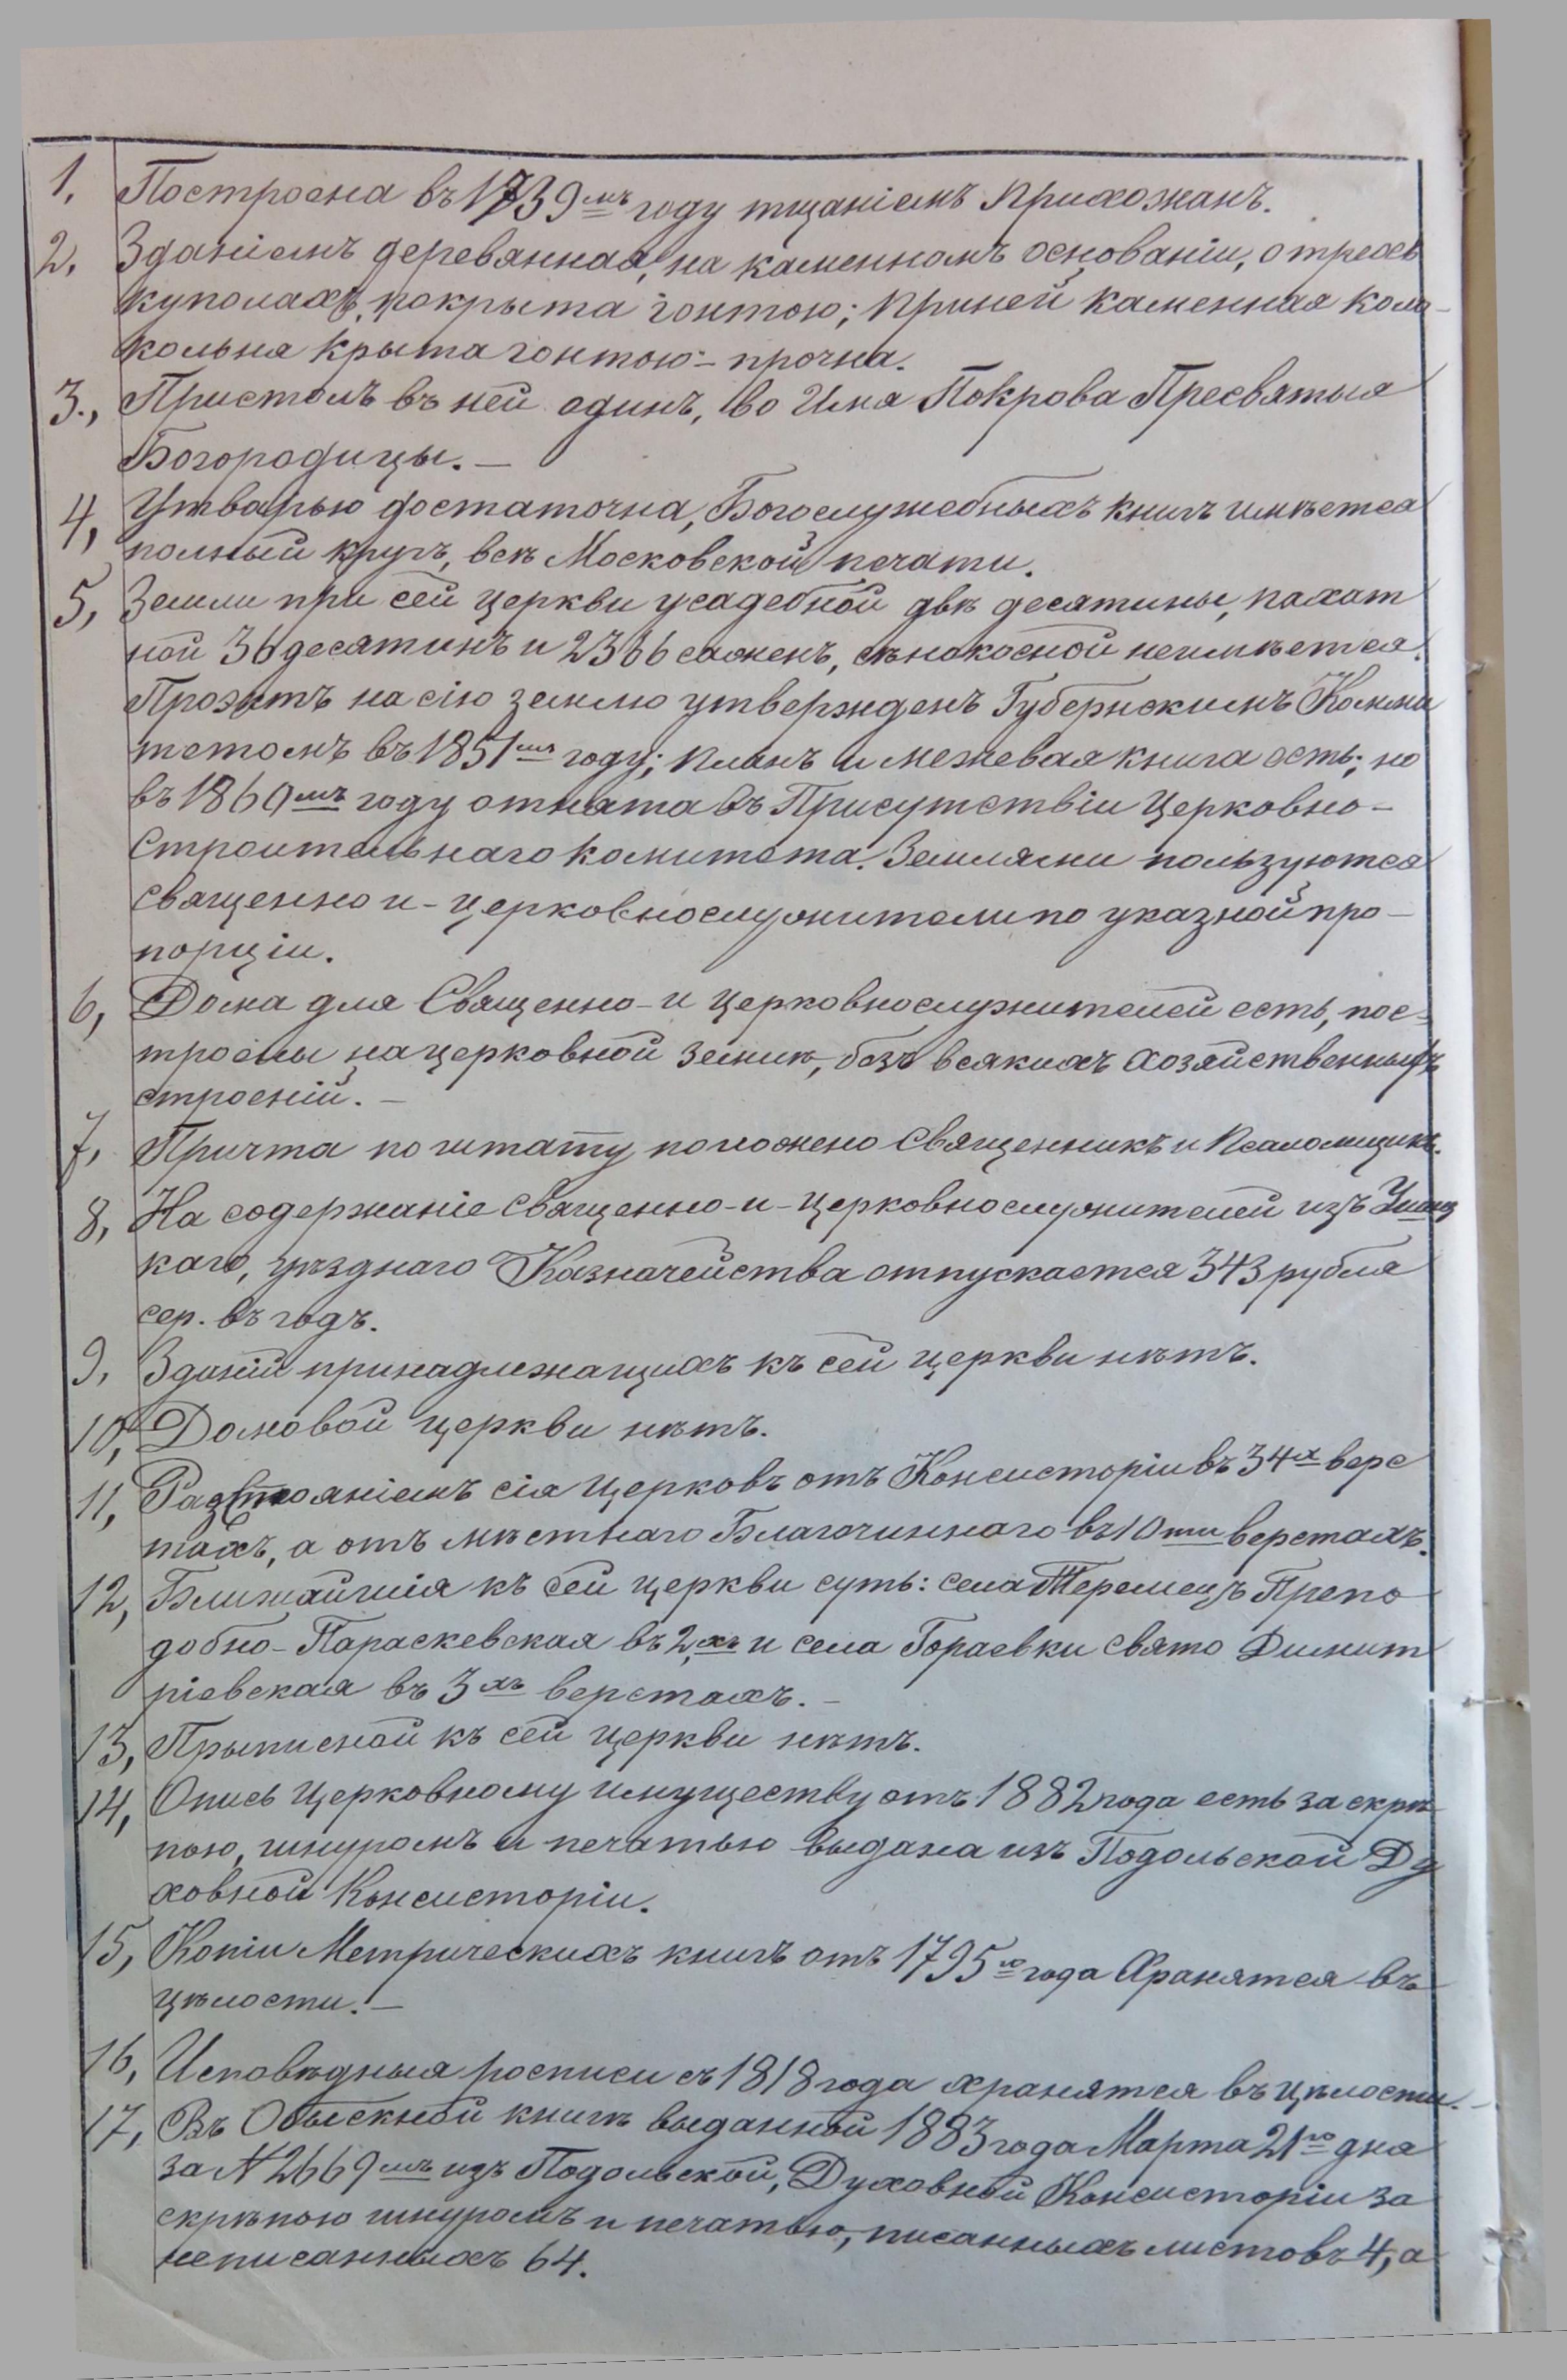 1, Построена въ 1739мъ году тщаніемъ прихожанъ.
2, Зданіемъ деревянная, на каменномъ основаніи, о трехъ
куполахъ, покрыта гонтою; при ней каменная коло-
кольня крыта гонтою – прочна.
3., Пристолъ въ ней одинъ, во Имя Покрова Пресвятыя
Богородицы. –
4, Утварью достаточна, Богослужебныхъ книгъ имѣется
полный кругъ, всѣ Московской печати.
5, Земли при сей церкви усадебной двѣ десятины, пахат
ной 36 десятинъ и 2366 сажень, сѣнокосной неимѣется.
Проэктъ на сію землю утвержденъ Губернскимъ Комми
тетомъ въ 1851мъ году; планъ и межевая книга есть; но
въ 1869мъ году отнята въ Присутствіи Церковно-
Строительнаго комитета. Землями пользуются
священно и-церковнослужители по указной про-
порціи.
6, Дома для Священно-и церковнослужителей есть, пос-
троены на церковной землѣ, безъ всякихъ хозяйственныхъ
строеній. –
7, Причта по штату положено Священникъ и Псаломщикъ.
8, На содержаніе священно-и-церковнослужителей изъ Ушиц
каго, уѣзднаго Казначейства отпускается 343 рубля
сер. въ годъ.
9, Зданій принадлежащихъ къ сей церкви нѣтъ.
10, Домовой церкви нѣтъ.
11, Разстояніемъ сія церковъ отъ Консисторіи въ 34х верс
тахъ, а отъ мѣстнаго Благочиннаго въ 10ти верстахъ.
12, Ближайшія къ сей церкви суть: села Теремецъ Препо
добно-Параскевская въ 2,хъ и села Гораевки Свято Димит
ріевская въ 3хъ верстахъ. –
13, Прыписной къ сей церкви нѣтъ.
14, Опись церковному имуществу отъ 1882 года есть за скрѣ
пою, шнуромъ и печатью выдана изъ Подольской Ду
ховной Консисторіи.
15, Копіи Метрическихъ книгъ отъ 1795го года хранятся въ
цѣлости. –
16, Исповѣдныя росписи съ 1818 года хранятся въ цѣлости. –
17, Въ Обыскной книгѣ выданной 1883 года Марта 21го дня
за № 2669мъ изъ Подольской, Духовной Консисторіи за
скрѣпою шнуромъ и печатью, писанныхъ листовъ 4, а
неписанныхъ 64.